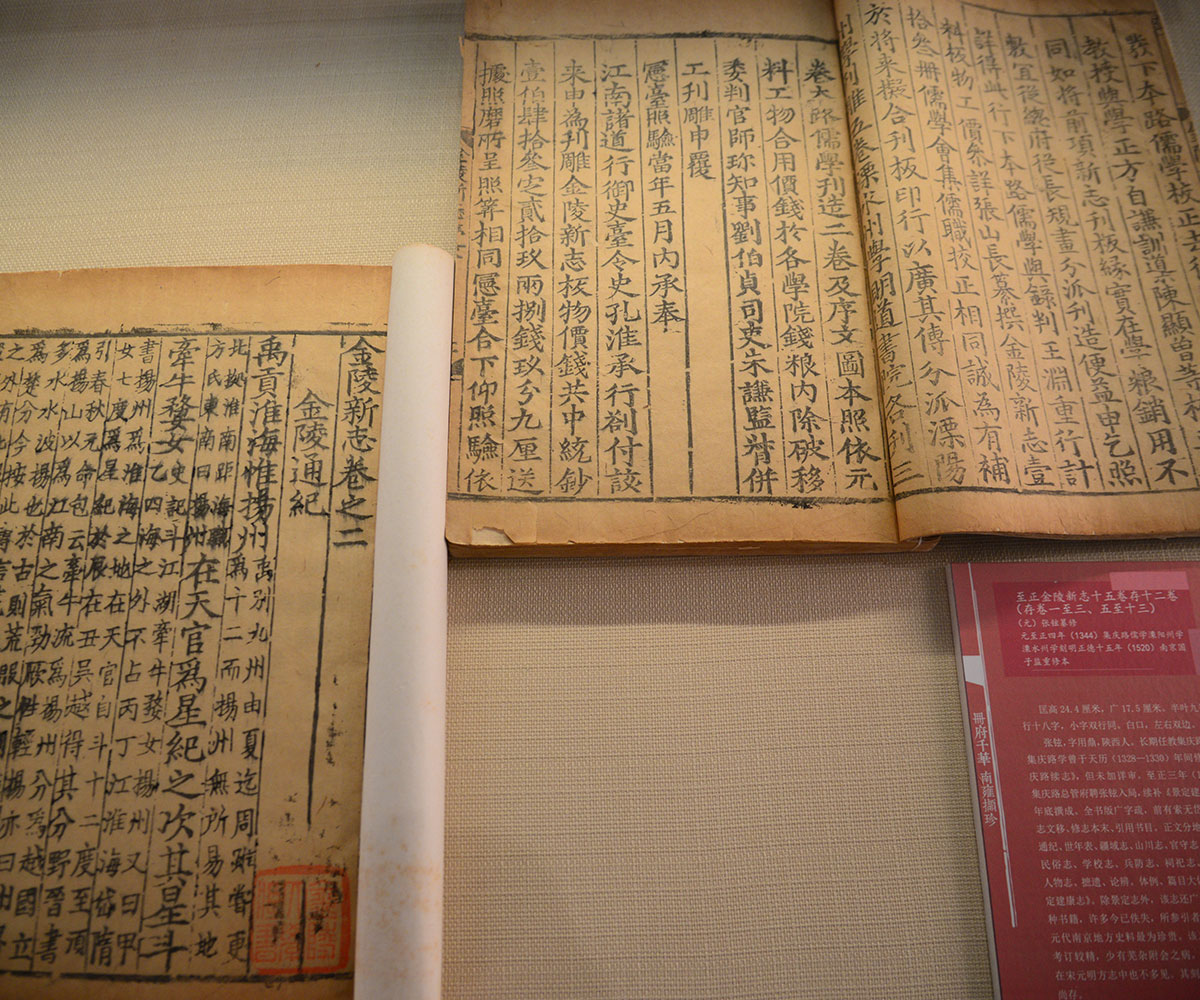 發下本路儒學校正
教授與學正方自謙訓導陳顯曾等校
同如將前項新志刊板緣實在學粮銷用不
敷宜從總府從長規畫分派刊造便益申乞照
詳得此行下本路儒學與錄判王淵重行計
料板物工價叅詳張山長纂撰金陵新志壹
拾叁冊儒學會集儒職挍正相同誠為有補
於將來擬合刊板印行以廣其傳分派溧陽
州學刊雕五卷溧水州學明道書院各刊三
卷大路儒學刊造二卷及序文圖本照依元
料工物合用價錢於各學院錢粮內除破移
委判官師珎知事劉伯貞司吏朱謙監督併
工刊雕申覆
憲臺照驗當年五月內承奉
江南諸道行御史臺令史孔淮承行劄付該
來申為刊雕金陵新志板物價錢共中統鈔
壹伯肆拾叁定貳拾玖兩捌錢玖分九厘送
據照磨所呈照筭相同憲臺合下仰照驗依
金陵新志卷之二
金陵通紀
禹貢淮海惟揚州禹別九州由夏迄周雖嘗更
州為十二而揚州無所易其地
北據淮南距海職
方氏東南曰揚州在天官爲星紀之次其星斗
牽牛婺女史記斗江湖牽牛婺女揚州又曰甲
乙四海之外不占丙丁江淮海岱隋
書揚州爲淮海之地在天官自斗十二度至須
女七度爲星紀於辰在丑吳越得其分野晉書
引春秋元命包云牽牛流爲揚州分爲越國立
爲揚山以爲江南之氣勁厥性輕揚亦曰州界
多水水波揚也於古則荒服之國
爲楚分今按此傳言
至正金陵新志十五卷存十二卷
（存卷一至三、五至十三）
（元）张铉纂修
元至正四年（1344）集庆路儒学溧阳州学
溧水州学刻明正德十五年（1520）南京国
子监重修本
匡高24.4厘米，广17.5厘米，半叶九
行十八字，小字双行同，白口，左右双边，
张铉，字用鼎，陕西人，长期任教集庆路
集庆路学曾于天历（1328—1330）年间修
庆路续志》，但未加详审，至正三年（
集庆路总管府聘张铉入局，续补《景定建
年底撰成，全书版广字疏，前有索元岱
志文移、修志本末、引用书目，正文分地
通纪、世年表、疆域志、山川志、官守志、
民俗志、学校志、兵防志、祠祀志、
人物志、摭遗、论辨，体例、篇目大体
定建康志》，除景定志外，该志还广
种书籍，许多今已佚失，所参引者
元代南京地方史料最为珍贵，该
考订较精，少有芜杂附会之病，
在宋元明方志中也不多见，其
尚有
冊府千華 南雍擷珍